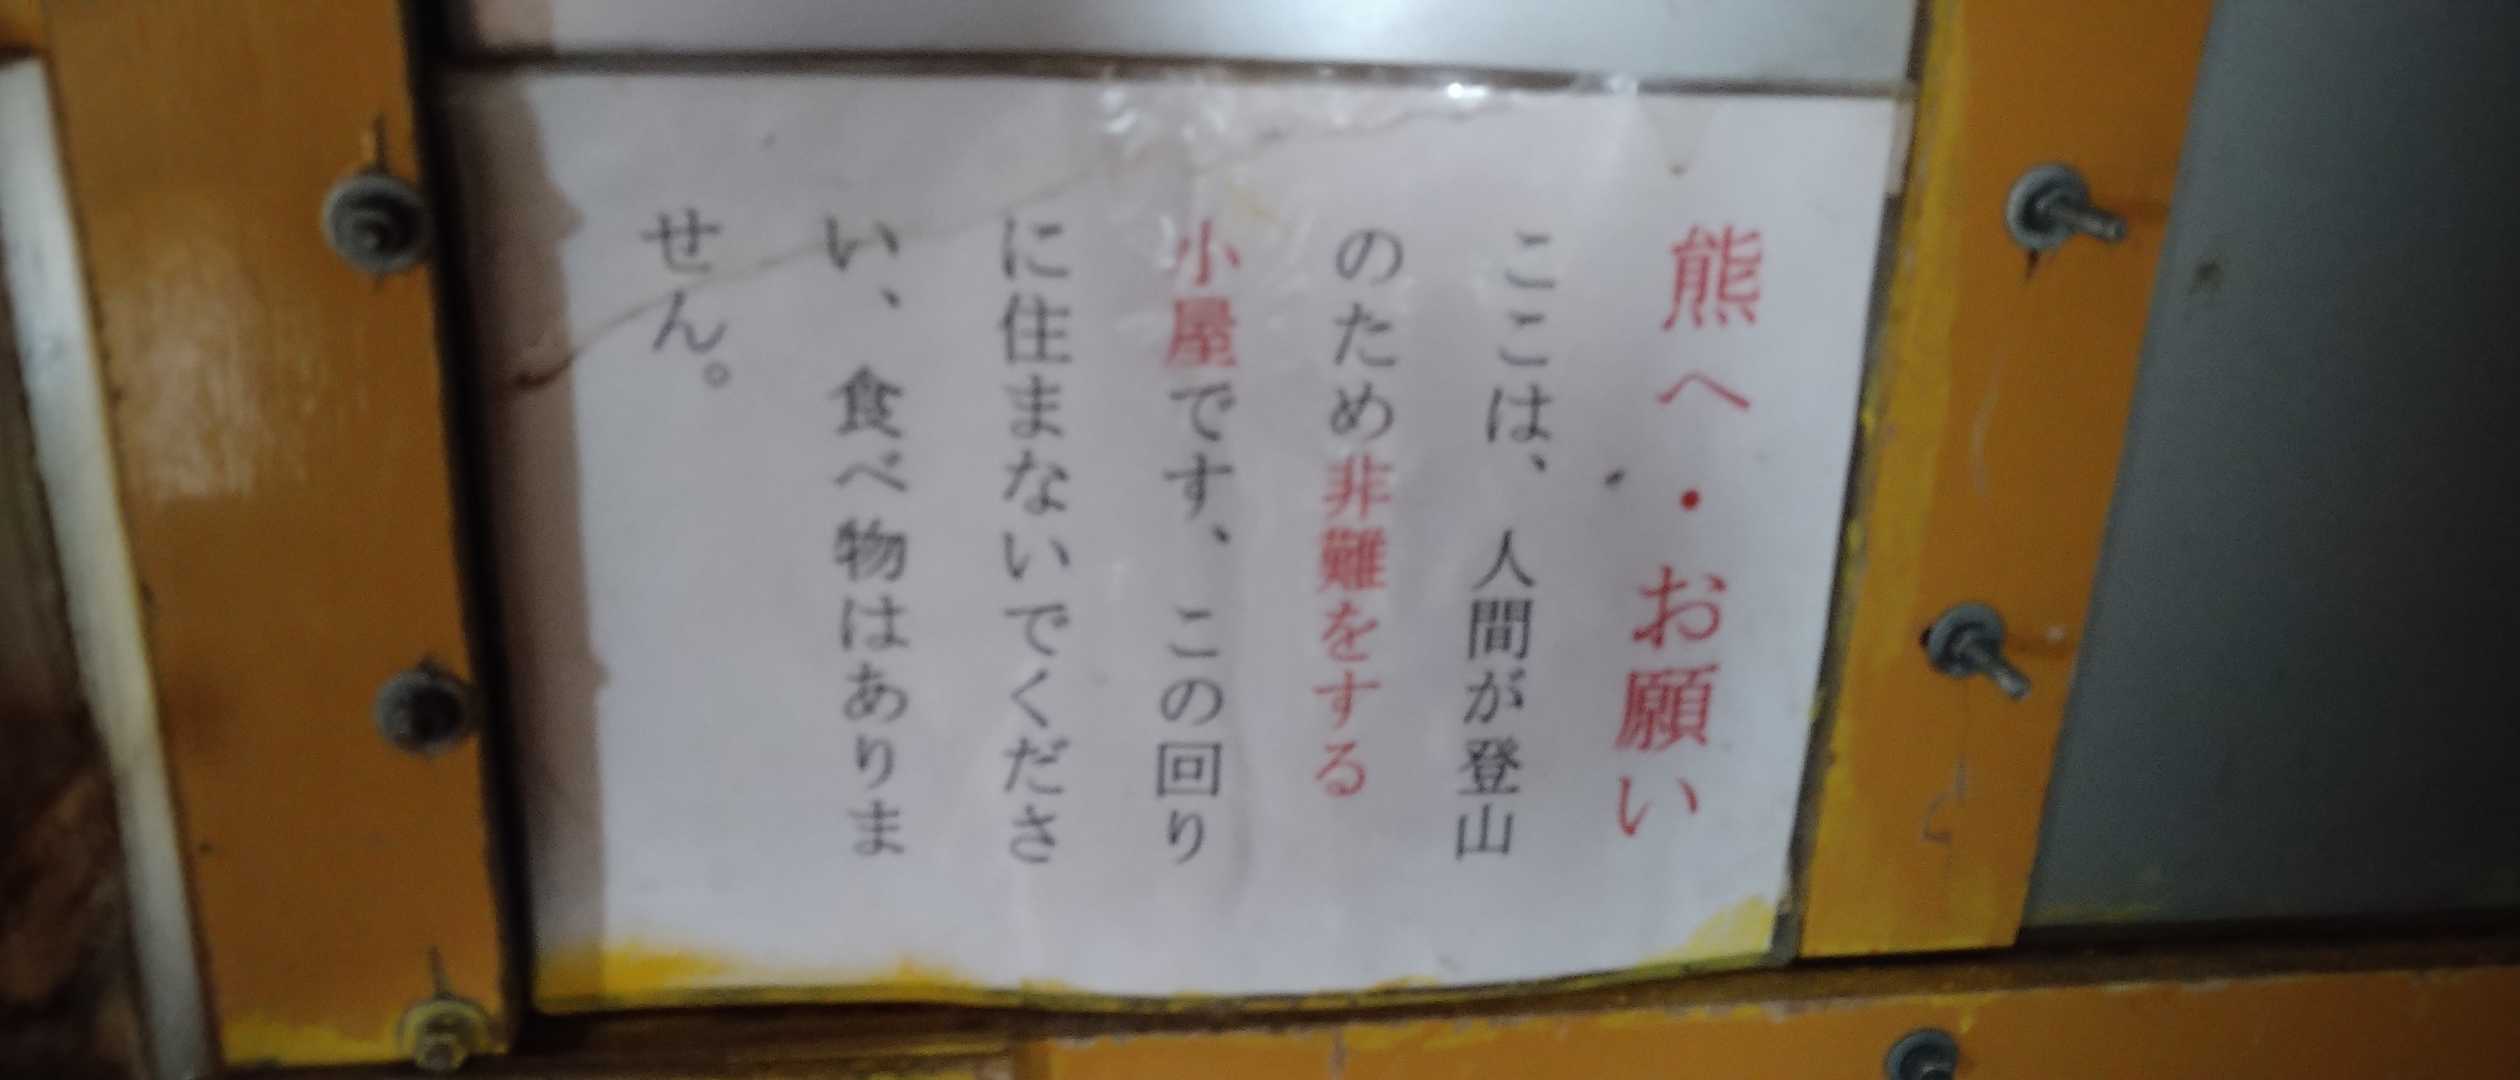 熊へ・お願い
ここは、人間が登山
のため非難をする
小屋です、この回り
に住まないでくださ
い、食べ物はありま
せん。